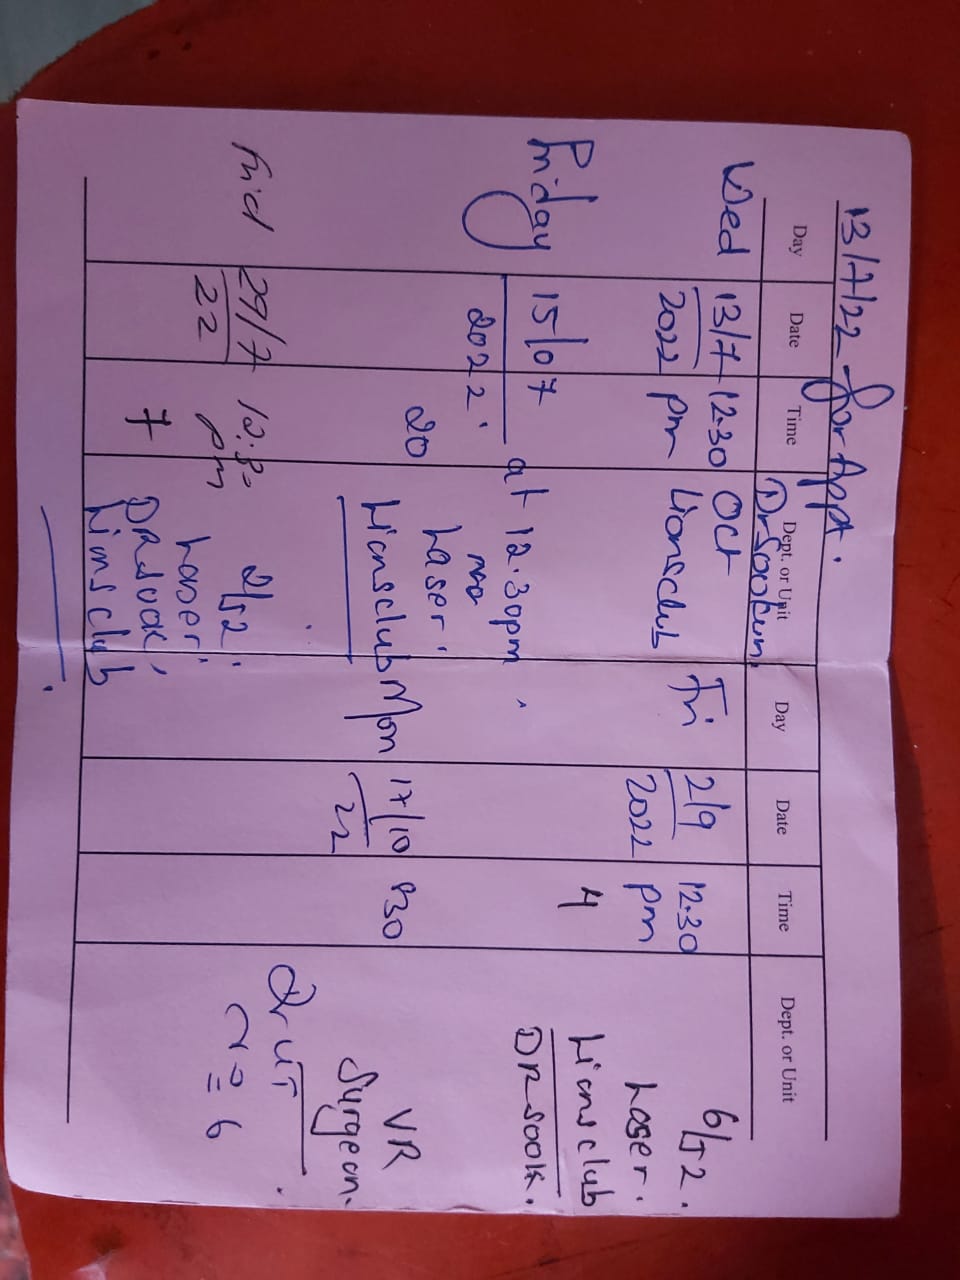 13/7/22 for Appt.
Dr Sookun.
Day Date Time Dept. or Unit
Wed 13/7 12.30 OCT
2022 pm Lionsclub
Friday 15/07 at 12.30pm.
2022.
Laser.
20 Lionsclub
29/7 2/52.
22 pm Laser.
7 DR Sook,
Lionsclub
Day Date Time Dept. or Unit
Fri 2/9 12.30 6/52.
2022 pm Laser.
4 Lionsclub
DR Sook.
Mon 17/10 830 VR
22 Surgeon.
6